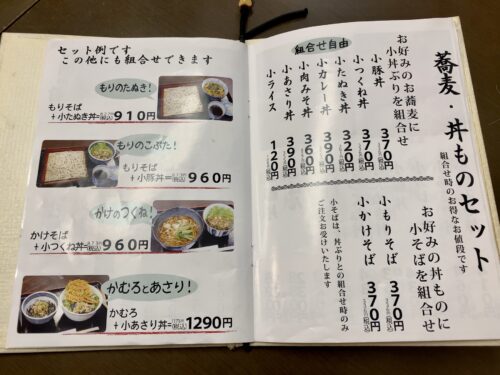 蕎麦・丼ものセット
組合せ時のお得なお値段です
お好みのお蕎麦に
小丼ぶりを組合せ
組合せ自由
小豚丼 370円
小つくね丼 370円
小たぬき丼 320円
小カレー丼 390円
小肉みそ丼 360円
小あさり丼 390円
小ライス 120円
お好みの丼ものに
小そばを組合せ
小もりそば 370円
小かけそば 370円
小そばは、丼ぶりとの組合せ時のみ
ご注文お受けいたします
セット例です
この他にも組合せできます
もりのたぬき!
もりそば
+小たぬき丼=910円
もりのこぶた!
もりそば
+小豚丼=960円
かけのつくね!
かけそば
+小つくね丼=960円
かむろとあさり!
かむろ
+小あさり丼=1290円